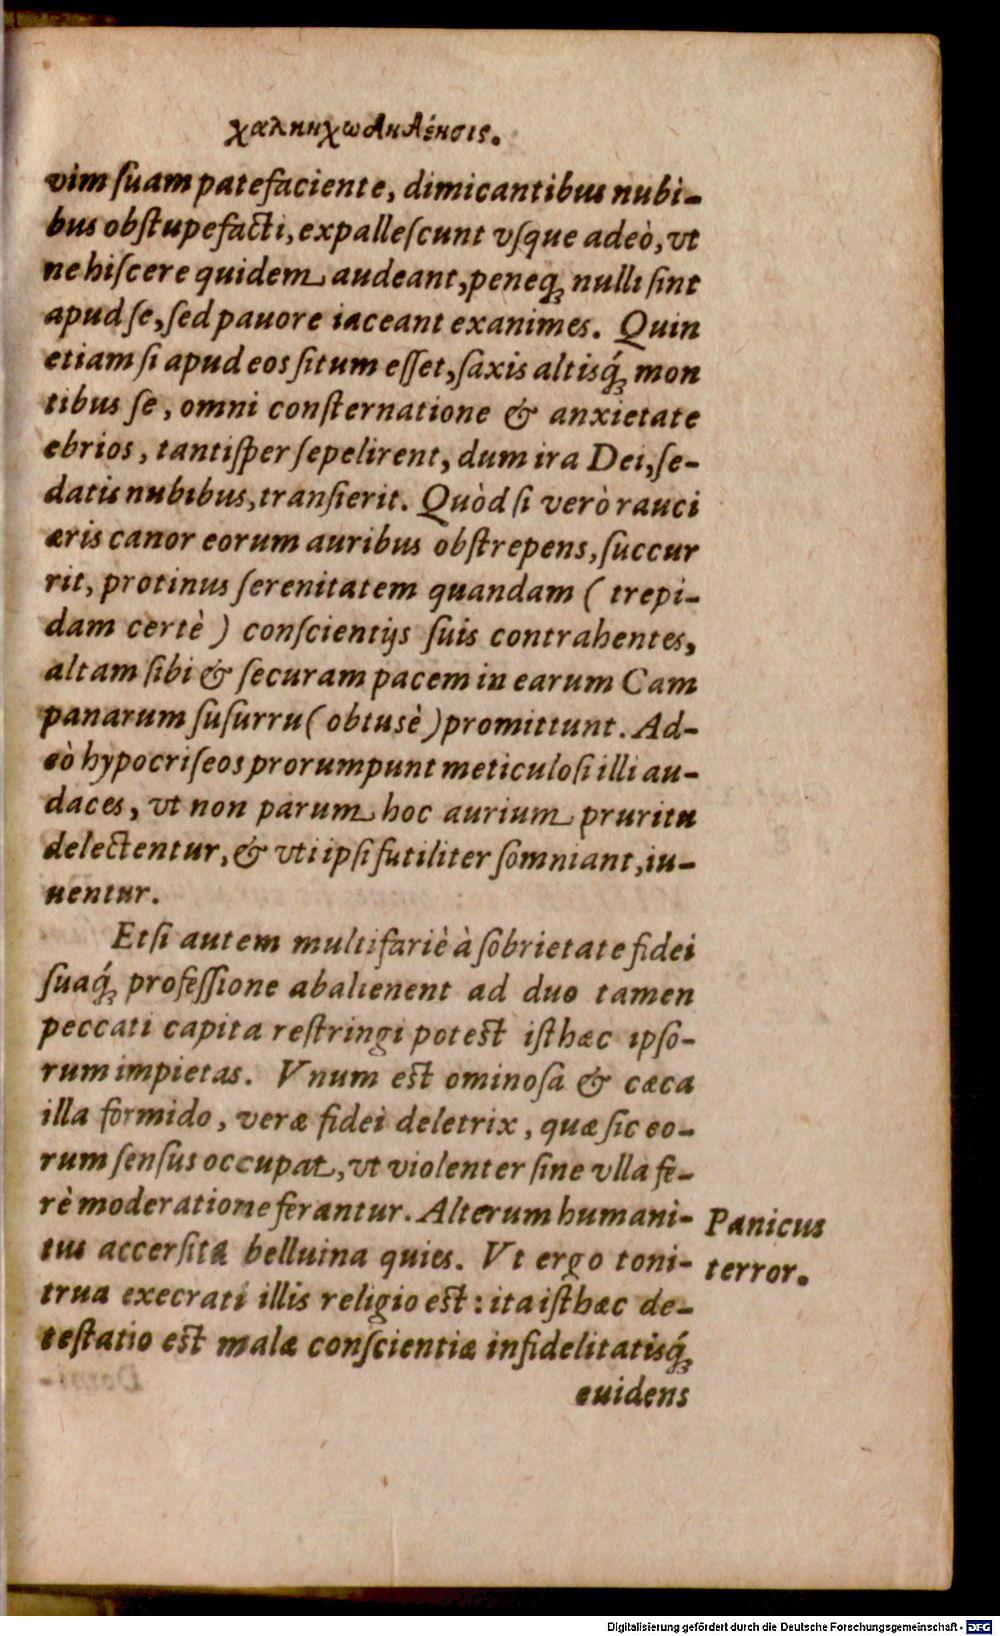 vim suam patefaciente, dimicantibus nubi-
bus obstupefacti, expallescunt vsque adeò, vt
ne hiscere quidem audeant, peneq́; nulli sint
apud se, sed pauore iaceant exanimes. Quin
etiam si apud eos situm esset, saxis altisq́; mon
tibus se, omni consternatione & anxietate
ebrios, tantisper sepelirent, dum ira Dei, se-
datis nubibus, transierit. Quòd si verò rauci
æris canor eorum auribus obstrepens, succur
rit, protinus serenitatem quandam ( trepi-
dam certè ) conscientijs suis contrahentes,
altam sibi & securam pacem in earum Cam
panarum susurru ( obtusè ) promittunt. Ad-
eò hypocriseos prorumpunt meticulosi illi au-
daces, vt non parum hoc aurium pruritu
delectentur, & vti ipsi futiliter somniant, iu-
uentur.
Etsi autem multifariè à sobrietate fidei
suaq́; professione abalienent ad duo tamen
peccati capita restringi potest isthæc ipso-
rum impietas. Vnum est ominosa & cæca
illa formido, veræ fidei deletrix, quæ sic eo-
rum sensus occupat, vt violenter sine vlla fe-
rè moderatione ferantur. Alterum humani-
tus accersita belluina quies. Vt ergo toni-
trua execrati illis religio est: ita isthæc de-
testatio est malæ conscientiæ infidelitatisq́;
euidens
Panicus
terror.
Digitalisierung gefördert durch die Deutsche Forschungsgemeinschaft - DFG